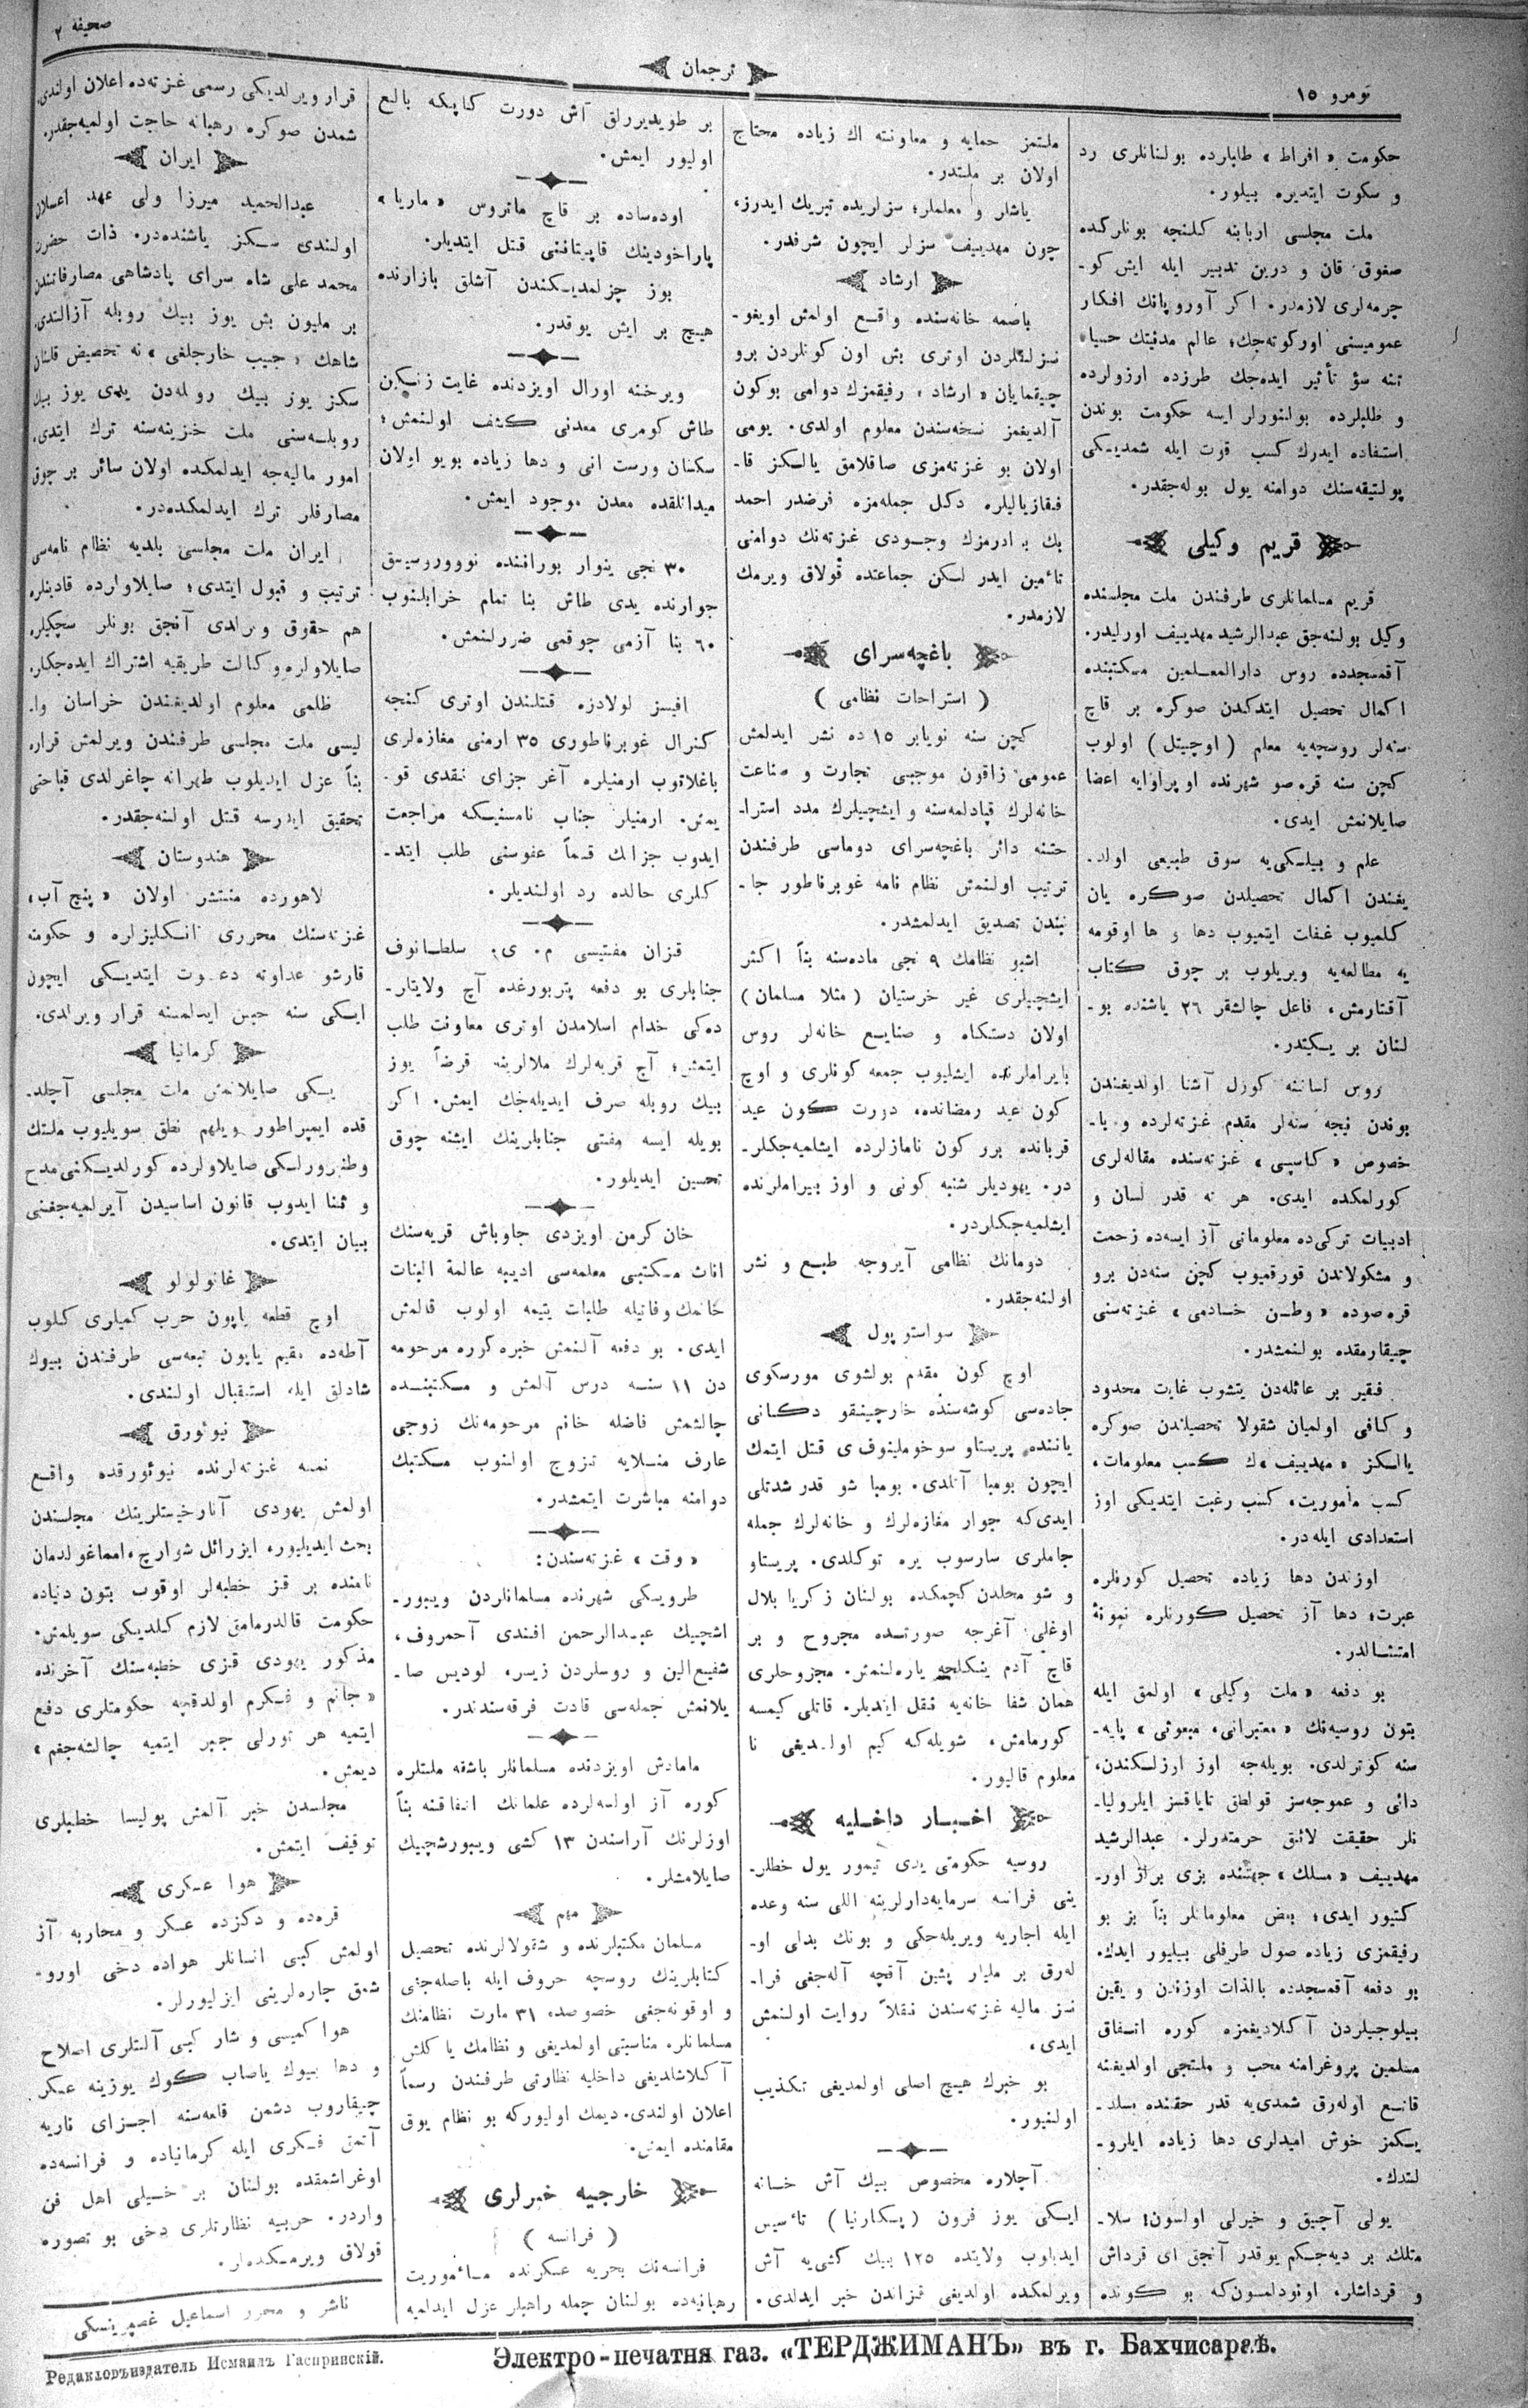 نومرو ١٥
ترجمان
صحيفه ٢
حكومت «افراط» طابارده بولنانلرى رد
و سكوت ايتديره بيلور.
ملت مجلسى اربابنه كلنجه بونلركده
صغوق قان و درين تدبير ايله ايش كو-
چرمه‌لرى لازمدر. اكر آوروپانك افكار
عموميسنى اوركوته‌جك؛ عالم مدنيتك حسيا-
تنه سؤ تأثير ايده‌جك طرزده ارزولرده
و طلبلرده بولنورلر ايسه حكومت بوندن
استفاده ايدرك كسب قوت ايله شمديكى
پولتيقه‌سنك دوامنه يول بوله‌جقدر.
قريم وكيلى
قريم مسلمانلرى طرفندن ملت مجلسنده
وكيل بولنه‌جق عبدالرشيد مهدييف اورليدر.
آقمسجدده روس دارالمعلمين مكتبنده
اكمال تحصيل ايتدكدن صوكره بر قاچ
سنه‌لر روسچه‌يه معلم (اوچيتل) اولوب
كچن سنه قره‌صو شهرنده اوپراوايه اعضا
صايلانمش ايدى.
علم و بيلكى‌يه سوق طبيعى اولد-
يغندن اكمال تحصيلدن صوكره يان
كلميوب غفلت ايتميوب دها و ها اوقومه
يه مطالعه‌يه ويريلوب بر چوق كتاب
آقتارمش، فاعل چالشقر ٢٦ ياشنده بو-
لنان بر يكيتدر.
روس لساننه كوزل آشنا اولديغندن
بوندن نيجه سنه‌لر مقدم غزته‌لرده و با-
خصوص «كاسپى» غزته‌سنده مقاله‌لرى
كورلمكده ايدى. هر نه قدر لسان و
ادبيات تركى‌ده معلوماتى آز ايسه‌ده زحمت
و مشكولاتدن قورقميوب كچن سنه‌دن برو
قره‌صوده «وطن خادمى» غزته‌سنى
چيقارمقده بولنمشدر.
فقير بر عائله‌دن يتشوب غايت محدود
و كافى اولميان شقولا تحصيلندن صوكره
يالكز «مهدييف»ك كسب معلومات،
كسب مأموريت، كسب رغبت ايتديكى اوز
استعدادى ايله‌در.
اوزندن دها زياده تحصيل كورنلره
عبرت؛ دها آز تحصيل كورنلره نمونهٔ
امتثالدر.
بو دفعه «ملت وكيلى» اولمق ايله
بتون روسيه‌نك «معتبرانى، مبعوثى» پايه-
سنه كوترلدى. بويله‌جه اوز ارزلكندن،
دائى و عموجه‌سز قولطق تاياقسز ايلروليا-
نلر حقيقت لائق حرمتدرلر. عبدالرشيد
مهدييف «مسلك» جهتنده بزى براز اور-
كتيور ايدى؛ بعض معلوماتلر بناً بز بو
رفيقمزى زياده صول طرفلى بيليور ايدك.
بو دفعه آقمسجدده بالذات اوزندن و يقين
بيلوجيلردن آكلاديغمزه كوره اتفاق
مسلمين پروغرامنه محب و ملتجى اولديغنه
قانع اوله‌رق شمدى‌يه قدر حقنده بسلد-
يكمز خوش اميدلرى دها زياده ايلرو-
لتدك.
يولى آچيق و خيرلى اولسون! سلا-
متلك بر ديه‌جكم يوقدر آنجق اى قرداش
و قرداشلر، اونودلمسون‌كه بو كونده
ملتمز حمايه و معاونته اك زياده محتاج
اولان بر ملتدر.
ياشلر و معلملر؛ سزلريده تبريك ايدرز،
چون مهدييف سزلر ايچون شرفدر.
ارشاد
باصمه خانه‌سنده واقع اولمش اويغو-
نسزلقلردن اوترى بش اون كونلردن برو
چيقمايان «ارشاد» رفيقمزك دوامى بوكون
آلديغمز نسخه‌سندن معلوم اولدى. يومى
اولان بو غزته‌مزى صاقلامق يالكز قا-
فقازياليلره دكل جمله‌مزه فرضدر احمد
بك برادرمزك وجودى غزته‌نك دوامنى
تأمين ايدر لكن جماعتده قولاق ويرمك
لازمدر.
باغچه‌سراى
( استراحات نظامى )
كچن سنه نويابر ١٥ ده نشر ايدلمش
عمومى زاقون موجبى تجارت و صناعت
خانه‌لرك قپادلمه‌سنه و ايشچيلرك مدد استرا-
حتنه دائر باغچه‌سراى دوماسى طرفندن
ترتيب اولنمش نظام نامه غوبرناطور جا-
نبندن تصديق ايدلمشدر.
اشبو نظامك ٩ نجى ماده‌سنه بناً اكثر
ايشچيلرى غير خرستيان (مثلا مسلمان)
اولان دستكاه و صنايع خانه‌لر روس
بايراملرنده ايشليوب جمعه كونلرى و اوچ
كون عيد رمضانده، دورت كون عيد
قربانده برر كون نامازلرده ايشلميه‌جكلر-
در. يهوديلر شنبه كونى و اوز بيراملرنده
ايشلميه‌جكلردر.
دومانك نظامى آيروجه طبع و نشر
اولنه‌جقدر.
سواستوپول
اوچ كون مقدم بولشوى مورسكوى
جاده‌سى كوشه‌سنده خارچينقو دكانى
ياننده پريستاو سوخوملينوف ى قتل ايتمك
ايچون بومبا آتلدى. بومبا شو قدر شدتلى
ايدى‌كه جوار مغازه‌لرك و خانه‌لرك جمله
جاملرى سارسوب يره توكلدى. پريستاو
و شو محلدن كچمكده بولنان زكريا بلال
اوغلى آغرجه صورتده مجروح و بر
قاچ آدم ينكلجه يارەلنمش. مجروحلرى
همان شفا خانه‌يه نقل ايتديلر. قاتلى كيمسه
كورمامش، شويله‌كه كيم اولديغى نا
معلوم قاليور.
اخبار داخليه
روسيه حكومتى يدى تيمور يول خطلر-
ينى فرانسه سرمايه‌دارلرينه اللى سنه وعده
ايله اجاريه ويريله‌جكى و بونك بدلى او-
له‌رق بر مليار پشين آقچه آله‌جغى فرا-
نسز ماليه غزته‌سندن نقلاً روايت اولنمش
ايدى،
بو خبرك هيچ اصلى اولمديغى تكذيب
اولنيور.
آچلاره مخصوص بيك آش خانه
ايكى يوز فرون (پكارنيا) تأسيس
ايديلوب ولايتده ١٢٥ بيك كشى‌يه آش
ويرلمكده اولديغى قزاندن خبر ايدلدى.
بر طويديررلق آش دورت كاپكه بالغ
اوليور ايمش.
اوده‌ساده بر قاچ ماتروس «ماريا»
پاراخودينك قاپيتاننى قتل ايتديلر.
بوز چزلمديكندن آشلق بازارنده
هيچ بر ايش يوقدر.
ويرخنه اورال اويزدنده غايت زنكين
طاش كومرى معدنى كشف اولنمش؛
سكسان ورست انى و دها زياده بويو اولان
ميدانلقده معدن موجود ايمش.
٣٠ نجى ينوار بورانننده نووروسيسق
جوارنده يدى طاش بنا تمام خرابلنوب
٦٠ بنا آزمى چوقمى ضررلنمش.
افيسز لولادزه قتلندن اوترى كنجه
كنرال غوبرناطورى ٣٥ ارمنى مغازه‌لرى
باغلاتوب ارمنيلره آغر جزاى نقدى قو-
يمش. ارمنيلر جناب نامستنيكه مراجعت
ايدوب جزانك قسماً عفوسنى طلب ايتد-
كلرى حالده رد اولنديلر.
قزان مفتيسى م. ى. سلطانوف
جنابلرى بو دفعه پتربورغده آچ ولايتلر-
ده‌كى خدام اسلامدن اوترى معاونت طلب
ايتمش؛ آچ قريه‌لرك ملالرينه قرضاً يوز
بيك روبله صرف ايديله‌جك ايمش. اكر
بويله ايسه مفتى جنابلرينك ايشنه چوق
تحسين ايديلور.
خان كرمن اويزدى جاوباش قريه‌سنك
اناث مكتبى معلمه‌سى اديبه عالمة البنات
خانمك وفاتيله طلبات يتيمه اولوب قالمش
ايدى. بو دفعه آلنمش خبره كوره مرحومه
دن ١١ سنه درس آلمش و مكتبنده
چالشمش فاضله خانم مرحومه‌نك زوجى
عارف منلايه تزوج اولنوب مكتبك
دوامنه مباشرت ايتمشدر.
«وقت» غزته‌سندن:
طرويسكى شهرنده مسلمانلردن ويبور-
اشچيك عبدالرحمن افندى آحمروف،
شفيع‌الين و روسلردن زيسر، لوديس صا-
يلانمش جمله‌سى قادت فرقه‌سندندر.
مامادش اويزدنده مسلمانلر باشقه ملتلره
كوره آز اولسه‌لرده علمانك اتفاقنه بناً
اوزلرنك آراسندن ١٣ كشى ويبورشچيك
صايلامشلر.
مهم
مسلمان مكتبلرنده و شقولالرنده تحصيل
كتابلرينك روسچه حروف ايله باصله‌جغى
و اوقونه‌جغى خصوصده ٣١ مارت نظامنك
مسلمانلره مناسبتى اولمديغى و نظامك ياكلش
آكلاشلديغى داخليه نظارتى طرفندن رسماً
اعلان اولندى. ديمك اوليوركه بو نظام يوق
مقامنده ايمش.
خارجيه خبرلرى
( فرانسه )
فرانسه‌نك بحريه عسكرنده مأموريت
رهبانيه‌ده بولنان جمله راهبلر عزل ايدلميه
قرار ويرلديكى رسمى غزته‌ده اعلان اولندى.
شمدن صوكره رهبانه حاجت اولميه‌جقدر.
ايران
عبدالحميد ميرزا ولى عهد اعلان
اولندى سكز ياشنده‌در. ذات حضرت
محمد على شاه سراى پادشاهى مصارفاتندن
بر مليون بش يوز بيك روبله آزالتدى.
شاهك «جيب خارجلغى»نه تخصيص قلنان
سكز يوز بيك روبله‌دن يدى يوز بيك
روبله‌سنى ملت خزينه‌سنه ترك ايتدى.
امور ماليه‌جه ايدلمكده اولان سائر بر چوق
مصارفلر ترك ايدلمكده‌در.
ايران ملت مجلسى بلديه نظام نامه‌سى
ترتيب و قبول ايتدى؛ صايلاولرده قادينلره
هم حقوق ويرلدى آنجق بونلر سچكلره
صايلاولره وكالت طريقيه اشتراك ايده‌جكلر.
ظلمى معلوم اولديغندن خراسان وا-
ليسى ملت مجلسى طرفندن ويرلمش قراره
بناً عزل ايديلوب طهرانه چاغرلدى قباحتى
تحقيق ايدرسه قتل اولنه‌جقدر.
هندوستان
لاهورده منتشر اولان «پنج آب»
غزته‌سنك محررى انكليزلره و حكومته
قارشو عداوته دعوت ايتديكى ايچون
ايكى سنه حبس ايدلمسنه قرار ويرلدى.
كرمانيا
يكى صايلانمش ملت مجلسى آچلد-
قده ايمپراطور ويلهم نطق سويليوب ملتك
وطنپرورلكى صايلاولرده كورلديكنى مدح
و ثنا ايدوب قانون اساسيدن آيرلميه‌جغنى
بيان ايتدى.
غانولولو
اوچ قطعه ياپون حرب كميلرى كلوب
آطه‌ده مقيم ياپون تبعه‌سى طرفندن بيوك
شادلق ايله استقبال اولندى.
نيوئورق
نمسه غزته‌لرنده نيوئورقده واقع
اولمش يهودى آنارخيستلرينك مجلسندن
بحث ايديليور، ايزرائل شوارچ، امماغولدمان
نامنده بر قز خطبه‌لر اوقوب بتون دنياده
حكومت قالدرمامق لازم كلديكى سويلمش.
مذكور يهودى قزى خطبه‌سنك آخرنده
«جانم و فكرم اولدقچه حكومتلرى دفع
ايتميه هر تورلى جبر ايتميه چالشه‌جغم»
ديمش.
مجلسدن خبر آلمش پوليسا خطبلرى
توقيف ايتمش.
هوا عسكرى
قره‌ده و دكزده عسكر و محاربه آز
اولمش كبى انسانلر هواده دخى اورو-
شمق چاره‌لرينى ايزليورلر.
هوا كميسى و شار كبى آلتلرى اصلاح
و دها بيوك ياصاب كوك يوزينه عسكر
چيقاروب دشمن قلعه‌سنه اجزاى ناريه
آتمق فكرى ايله كرمانياده و فرانسه‌ده
اوغراشمقده بولنان بر خيلى اهل فن
واردر. حربيه نظارتلرى دخى بو تصوره
قولاق ويرمكده‌لر.
ناشر و محرر اسماعيل غصپرينسكى
Редакторъиздатель Исмаилъ Гаспринскій.
Электро-печатня газ. «ТЕРДЖИМАНЪ» въ г. Бахчисараѣ.